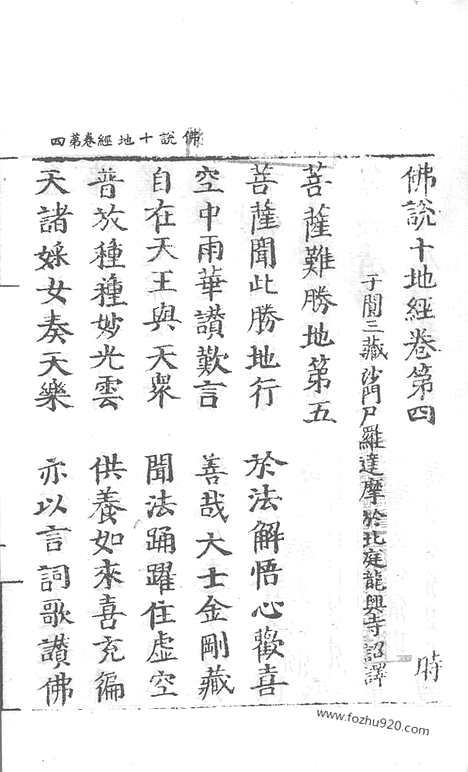 佛說十地經卷第四
佛說十地經卷第四 時
于闐三藏沙門尸羅達摩於北庭龍興寺詔譯
菩薩難勝地第五
菩薩聞此勝地行 於法解悟心歡喜
空中雨華讚歎言 善哉大士金剛藏
自在天王與天眾 聞法踊躍住虛空
普放種種妙光雲 供養如來喜充徧
天諸婇女奏天樂 亦以言詞歌讚佛
www.fozhu920.com